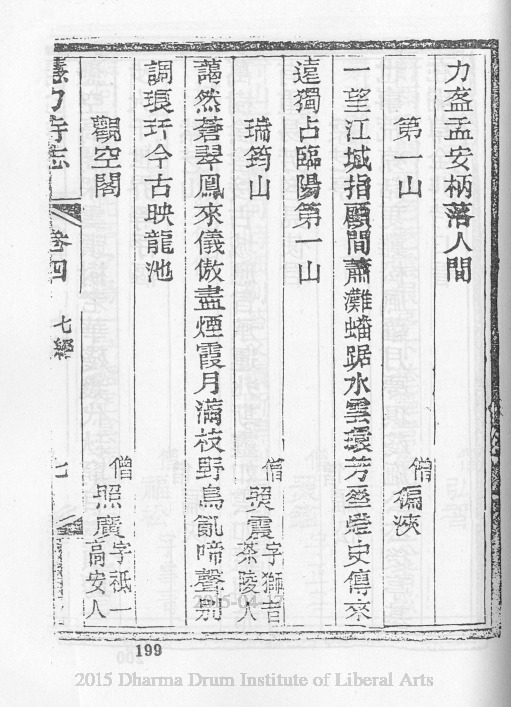 力盔盂安柄落人間
第一山
僧 徧浹
一望江城指顧間蕭灘蟠踞水雲環芳
史傳來
遠獨占臨陽第一山
瑞筠山
僧 煚震 字獅音 茶陵人
藹然蒼翠鳳來儀傲盡煙霞月滿枝野鳥亂啼聲別
調琅玕今古映龍池
觀空閣
僧 照廣 字祇一 高安人
慧力寺志
卷四
七經
七
2015-04
199
2015 Dharma Drum Institute of Liberal Arts